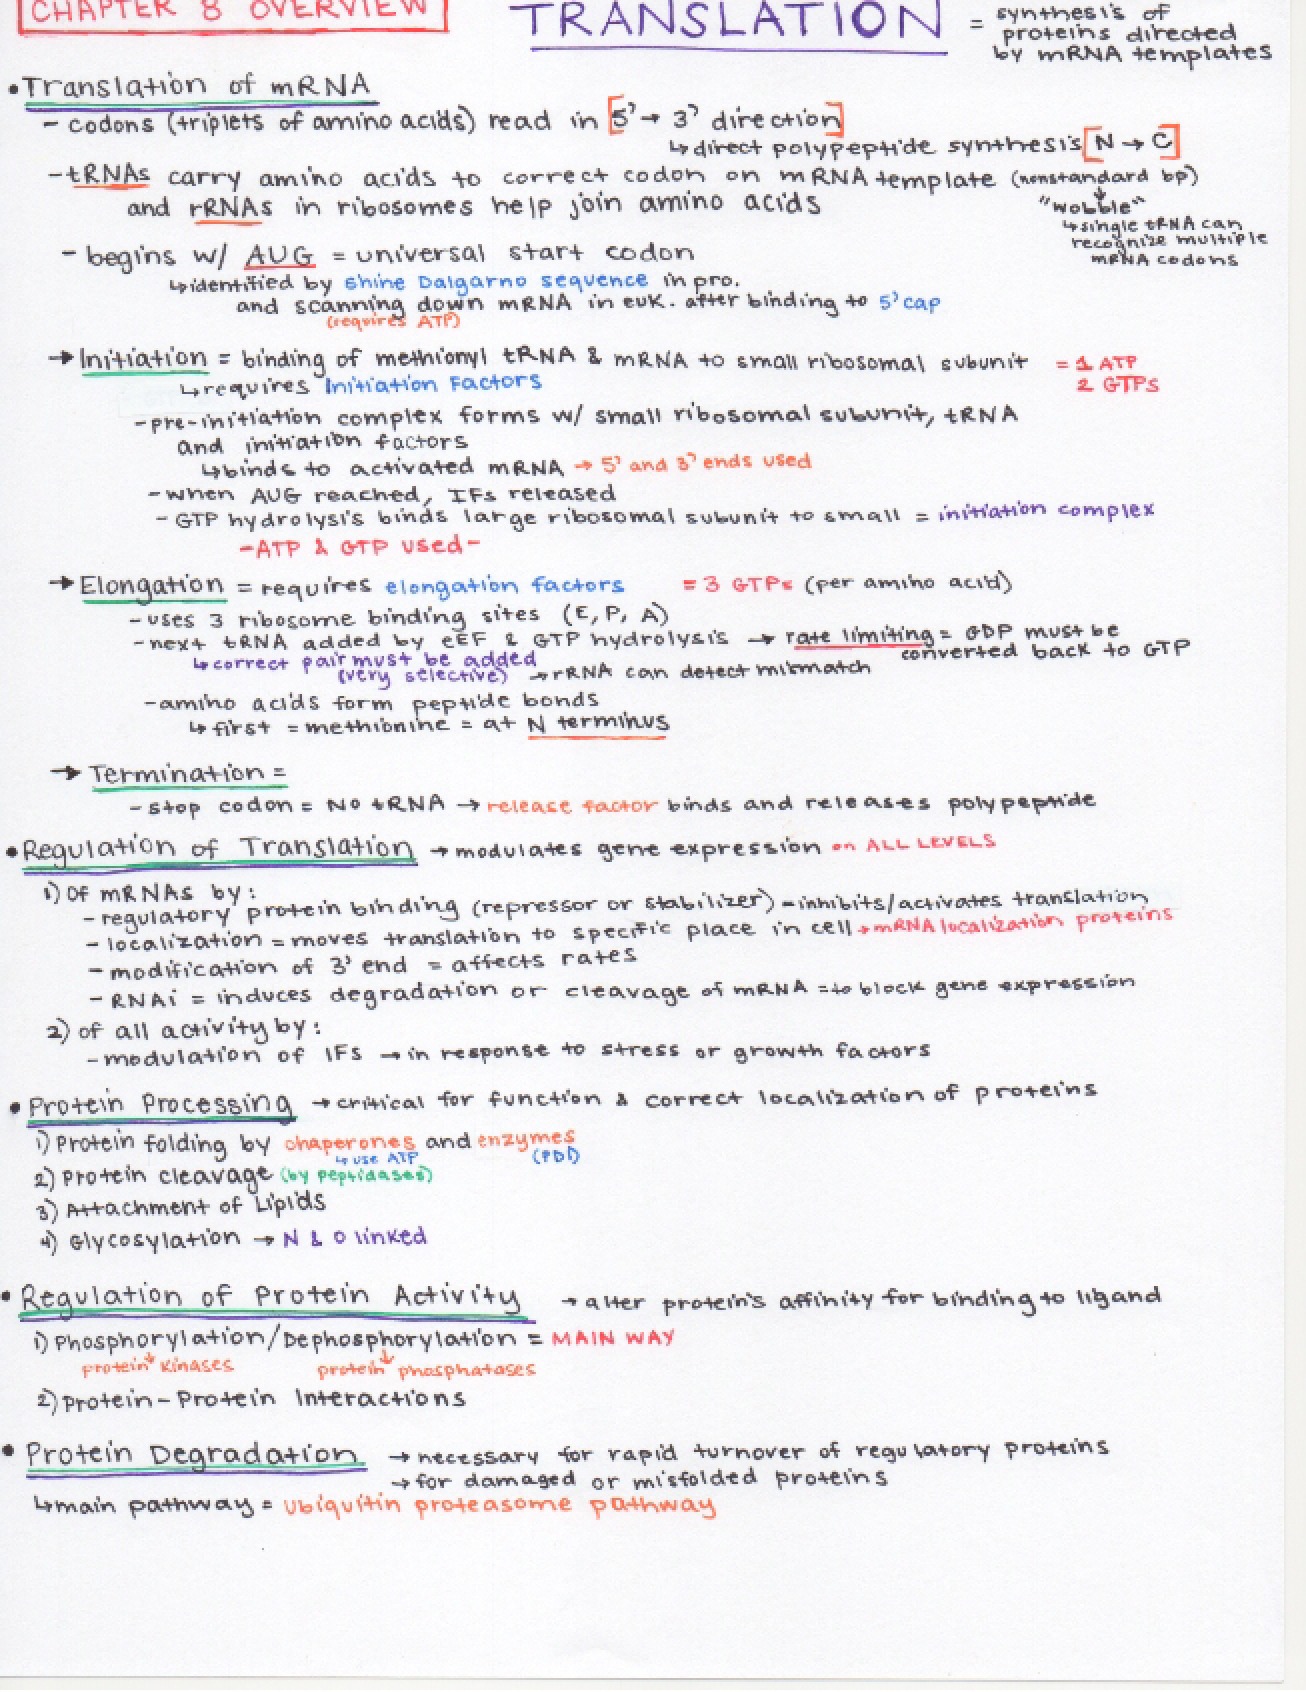 CHAPTER 8 OVERVIEW
TRANSLATION = synthesis of
proteins directed
by mRNA templates
• Translation of mRNA
- codons (triplets of amino acids) read in [5' → 3' direction]
↳ direct polypeptide synthesis [N → C]
- tRNAs carry amino acids to correct codon on mRNA template (nonstandard bp)
and rRNAs in ribosomes help join amino acids
"wobble"
↳ single tRNA can
recognize multiple
mRNA codons
- begins w/ AUG = universal start codon
↳ identified by Shine Dalgarno sequence in pro.
and scanning down mRNA in euk. after binding to 5' cap
(requires ATP)
→ Initiation = binding of methionyl tRNA & mRNA to small ribosomal subunit = 1 ATP
2 GTPs
↳ requires Initiation Factors
- pre-initiation complex forms w/ small ribosomal subunit, tRNA
and initiation factors
↳ binds to activated mRNA → 5' and 3' ends used
- when AUG reached, IFs released
- GTP hydrolysis binds large ribosomal subunit to small = initiation complex
- ATP & GTP used -
→ Elongation = requires elongation factors = 3 GTPs (per amino acid)
- uses 3 ribosome binding sites (E, P, A)
- next tRNA added by eEF & GTP hydrolysis → rate limiting = GDP must be
converted back to GTP
↳ correct pair must be added
(very selective) → rRNA can detect mismatch
- amino acids form peptide bonds
↳ first = methionine = at N terminus
→ Termination =
- stop codon = No tRNA → release factor binds and releases polypeptide
• Regulation of Translation → modulates gene expression on ALL LEVELS
1) Of mRNAs by:
- regulatory protein binding (repressor or stabilizer) = inhibits/activates translation
- localization = moves translation to specific place in cell → mRNA localization proteins
- modification of 3' end = affects rates
- RNAi = induces degradation or cleavage of mRNA = to block gene expression
2) of all activity by:
- modulation of IFs → in response to stress or growth factors
• Protein Processing → critical for function & correct localization of proteins
1) Protein folding by chaperones and enzymes
↳ use ATP (PDI)
2) Protein cleavage (by peptidases)
3) Attachment of Lipids
4) Glycosylation → N & O linked
• Regulation of Protein Activity → alter protein's affinity for binding to ligand
1) Phosphorylation/Dephosphorylation = MAIN WAY
protein kinases protein phosphatases
2) Protein-Protein Interactions
• Protein Degradation → necessary for rapid turnover of regulatory proteins
→ for damaged or misfolded proteins
↳ main pathway = ubiquitin proteasome pathway